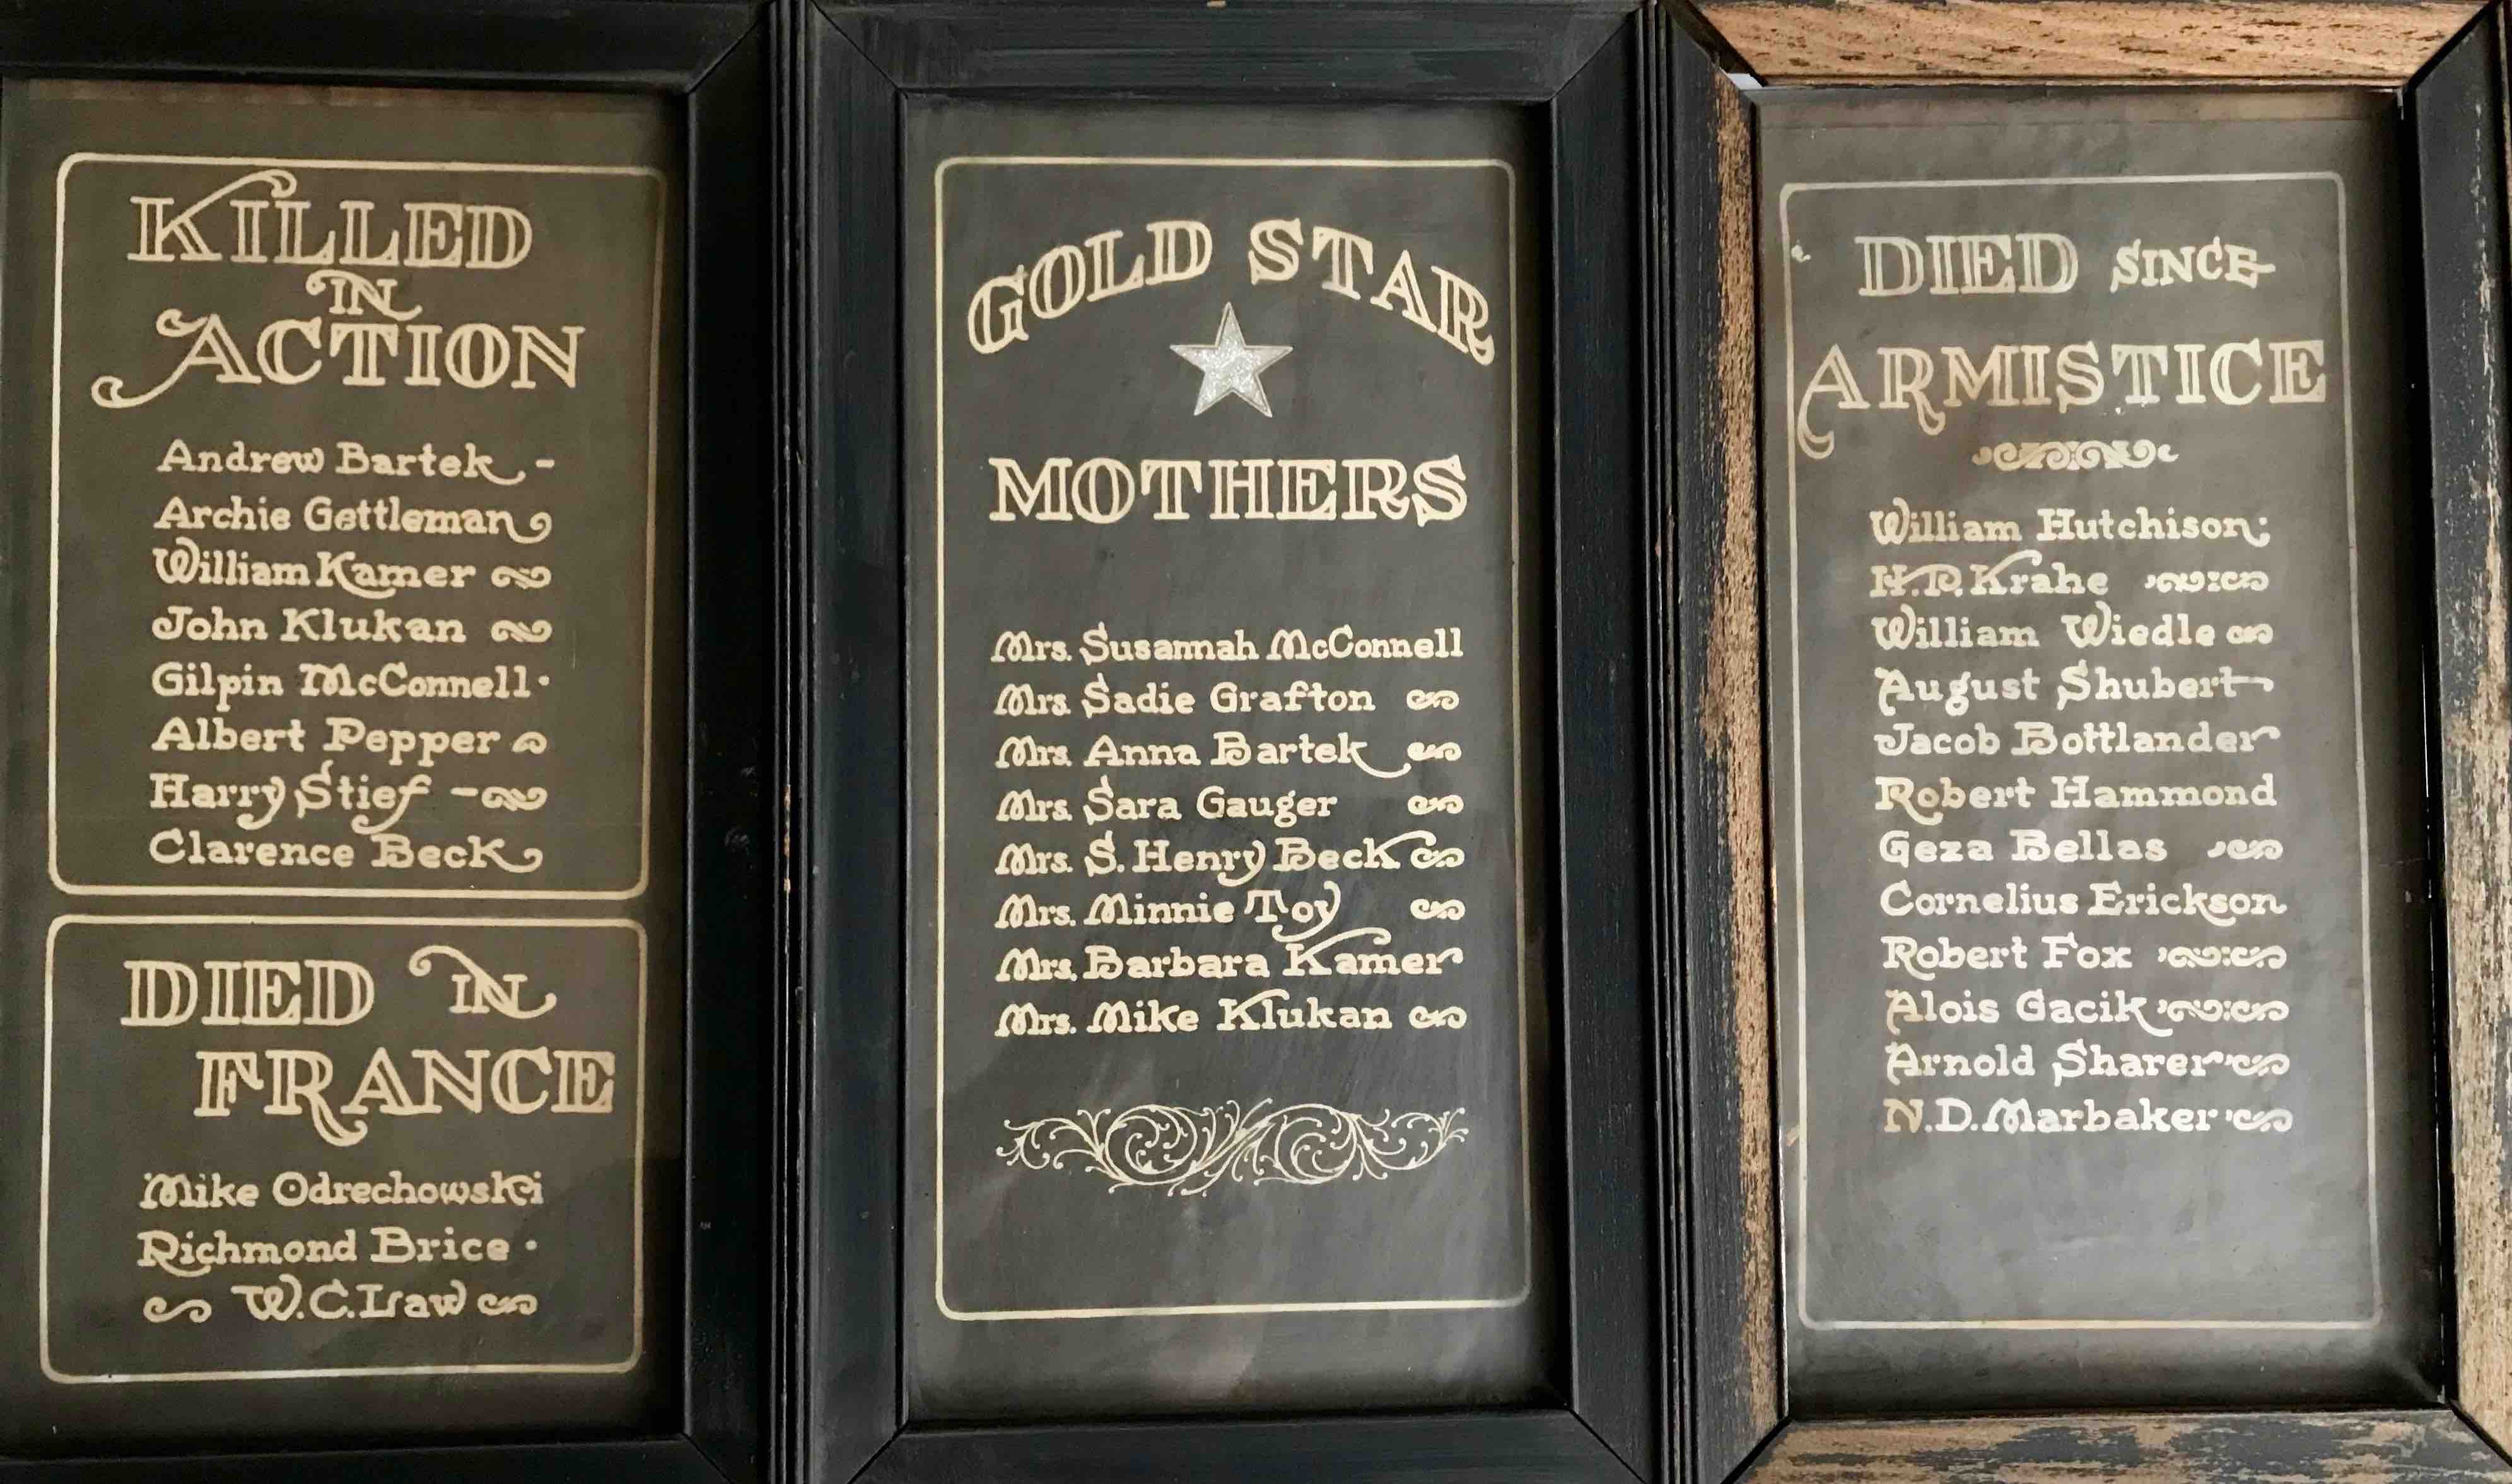 KILLED
IN
ACTION
Andrew Bartek
Archie Gettleman
William Kamer
John Klukan
Gilpin McConnell
Albert Pepper
Harry Stief
Clarence Beck
DIED IN
FRANCE
Mike Odrechowski
Richmond Brice
W.C. Law
GOLD STAR
MOTHERS
Mrs. Susannah McConnell
Mrs. Sadie Grafton
Mrs. Anna Bartek
Mrs. Sara Gauger
Mrs. S. Henry Beck
Mrs. Minnie Toy
Mrs. Barbara Kamer
Mrs. Mike Klukan
DIED SINCE
ARMISTICE
William Hutchison
H.P. Krahe
William Wiedle
August Shubert
Jacob Bottlander
Robert Hammond
Geza Bellas
Cornelius Erickson
Robert Fox
Alois Gacik
Arnold Sharer
N.D. Marbaker